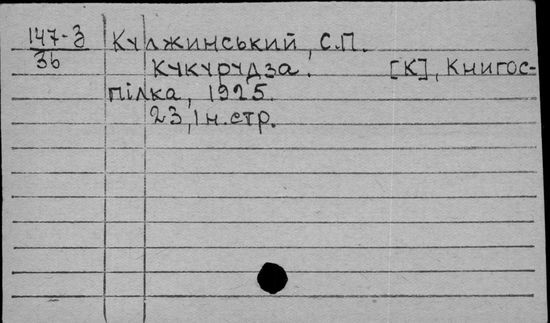 147-З Кулжинський, С.П.
36 Кукурудза. [К], Книгос-
пілка, 1925.
23, 1 н.стр.